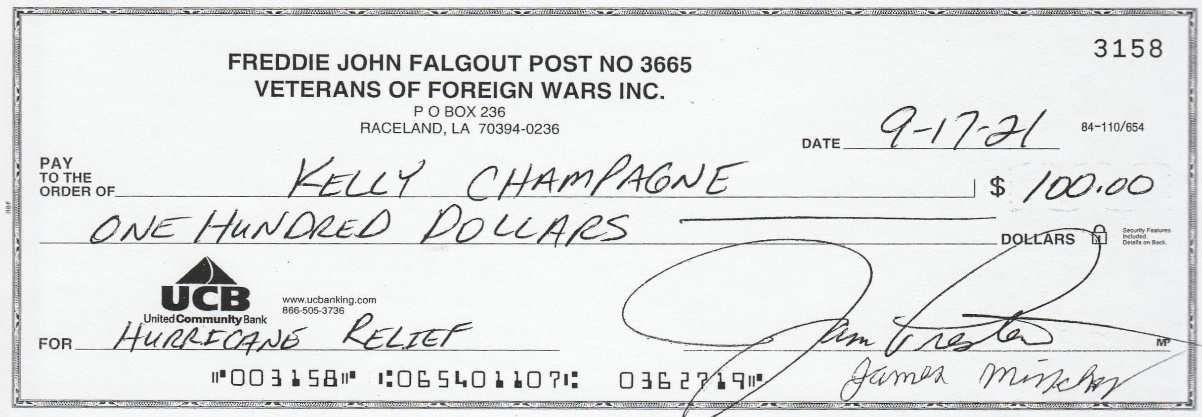 3158
FREDDIE JOHN FALGOUT POST NO 3665
VETERANS OF FOREIGN WARS INC.
P O BOX 236
RACELAND, LA 70394-0236
DATE 9-17-21 84-110/654
PAY
TO THE
ORDER OF KELLY CHAMPAGNE $ 100.00
ONE HUNDRED DOLLARS DOLLARS
Security Features
Included.
Details on Back.
UCB
United Community Bank
www.ucbanking.com
866-505-3736
FOR HURRICANE RELIEF
MP
⑈003158⑈ ⑆065401107⑆ 0362719⑈
James